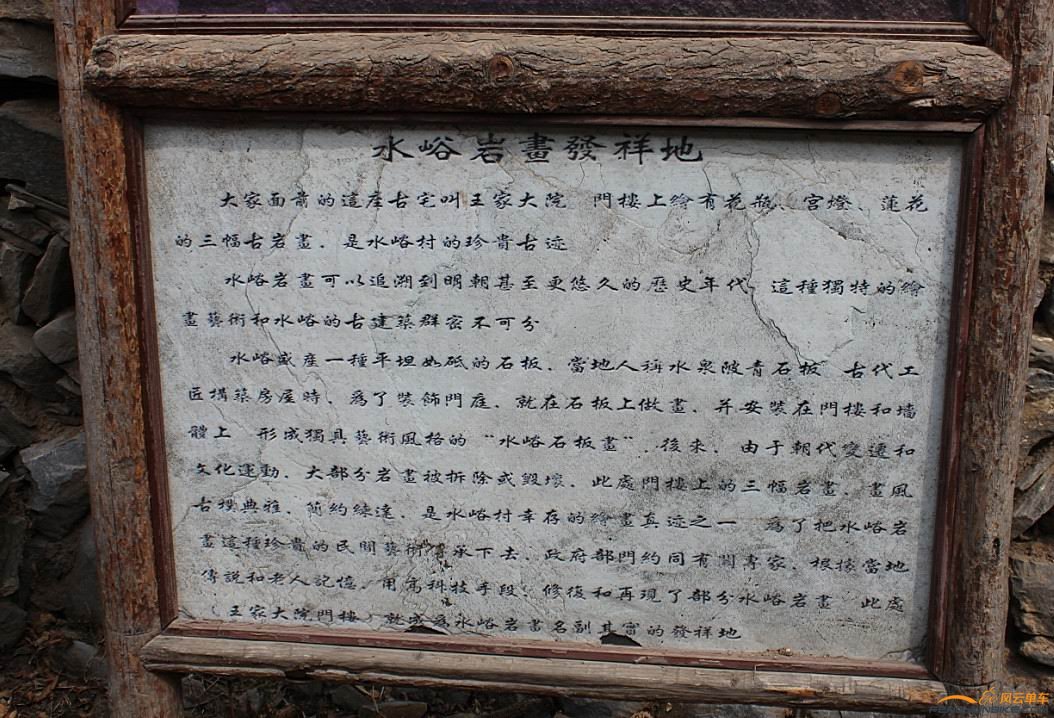 水峪岩畫發祥地
大家面前的這座古宅叫王家大院 門樓上繪有花瓶、宮燈、蓮花
的三幅古岩畫、是水峪村的珍貴古迹
水峪岩畫可以追溯到明朝甚至更悠久的歷史年代 這種獨特的繪
畫藝術和水峪的古建築群密不可分
水峪盛産一種平坦如砥的石板、當地人稱水泉陂青石板 古代工
匠構築房屋時、爲了裝飾門庭、就在石板上做畫、并安裝在門樓和墻
體上 形成獨具藝術風格的“水峪石板畫”、後來、由于朝代變遷和
文化運動、大部分岩畫被拆除或毀壞、此處門樓上的三幅岩畫、畫風
古樸典雅、簡約練達、是水峪村幸存的繪畫真迹之一 爲了把水峪岩
畫這種珍貴的民間藝術傳承下去、政府部門約同有關專家、根據當地
傳說和老人記憶、用高科技手段、修復和再現了部分水峪岩畫 此處
（王家大院門樓）就成爲水峪岩畫名副其實的發祥地
风云单车